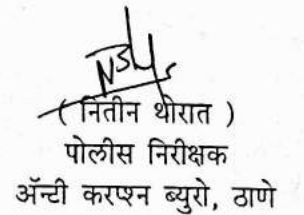 ( नितीन थोरात )
पोलीस निरीक्षक
ॲन्टी करप्शन ब्युरो, ठाणे